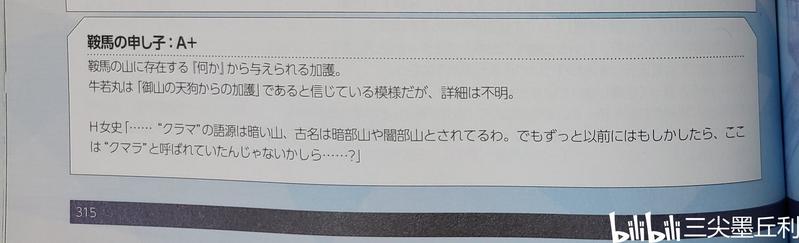 鞍馬の申し子：A+
鞍馬の山に存在する『何か』から与えられる加護。
牛若丸は「御山の天狗からの加護」であると信じている模様だが、詳細は不明。
H女史「…… “クラマ”の語源は暗い山、古名は暗部山や闇部山とされてるわ。でもずっと以前にはもしかしたら、ここ
は “クマラ”と呼ばれていたんじゃないかしら……？」
315
bilibili 三尖墨丘利